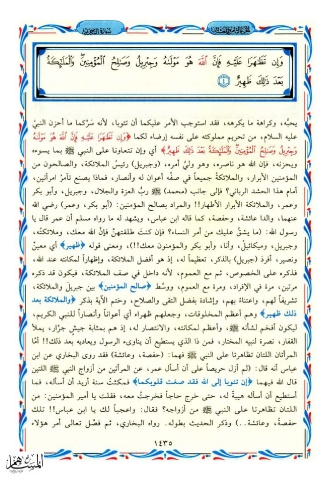 وَإِن تَظَٰهَرَا عَلَيْهِ فَإِنَّ ٱللَّهَ هُوَ مَوْلَىٰهُ وَجِبْرِيلُ وَصَٰلِحُ ٱلْمُؤْمِنِينَ وَٱلْمَلَٰٓئِكَةُ
بَعْدَ ذَٰلِكَ ظَهِيرٌ
يحبُّه، وكراهة ما يكرهه، فقد استوجب الأمر عليكما أن تتوبا، لأنه سَرَّكما ما أحزن النبيَّ
عليه السلام، من تحريم مملوكته على نفسه إرضاء لكما ﴿وَإِن تَظَٰهَرَا عَلَيْهِ فَإِنَّ ٱللَّهَ هُوَ مَوْلَىٰهُ
وَجِبْرِيلُ وَصَٰلِحُ ٱلْمُؤْمِنِينَ وَٱلْمَلَٰٓئِكَةُ بَعْدَ ذَٰلِكَ ظَهِيرٌ﴾ أي وإن تتعاونا على النبي ﷺ بما يسوءه
ويحزنه، فإن الله هو ناصره، وهو وليُّ أمره، (وجبريل) رئيسُ الملائكة، والصالحون من
المؤمنين الأبرار، والملائكةُ جميعاً في صفِّه أعوان له وأنصار، فماذا يصنع تآمرُ امرأتين،
أمام هذا الحشد الرباني؟ فإلى جانب (محمد) ﷺ ربُّ العزة والجلال، وجبريل، وأبو بكر
وعمر، والملائكة الأبرار الأطهار!! والمراد بصالح المؤمنين: (أبو بكر، وعمر) رضي الله
عنهما، والدا عائشة، وحفصة، كما قاله ابن عباس، ويشهد له ما رواه مسلم أن عمر قال يا
رسول الله: (ما يشقُّ عليك من أمر النساء؟ فإن كنتَ طلقتهنَّ فإنَّ الله معك، وملائكته،
وجبريل، وميكائيل، وأنا، وأبو بكر والمؤمنون معك!!)، ومعنى قوله ﴿ظهير﴾ أي معينٌ
ونصير، أفرد (جبريل) بالذكر، تعظيماً له، إذ هو أفضل الملائكة، وإظهاراً لمكانته عند الله،
فذكره على الخصوص، ثم مع العموم، لأنه داخل في صف الملائكة، فيكون قد ذكره
مرتين، مرة في الإفراد، ومرة مع العموم، ووسَّط ﴿صالح المؤمنين﴾ بين جبريل والملائكة،
تشريفاً لهم، واعتناءً بهم، وإشادة بفضل التقى والصلاح، وختم الآية بذكر ﴿والملائكة بعد
ذلك ظهير﴾ وهم أعظم المخلوقات، وجعلهم ظهراء أي أعواناً وأنصاراً للنبي الكريم،
ليكون أفخم لشأنه ﷺ، وأعظم لمكانته، والانتصار له، إذ هم بمثابة جيشٍ جرَّار، يملأ
القفار، نصرة لنبيه المختار، فمن ذا الذي يستطيع أن يناوئ الرسول ويعاديه بعد ذلك!! أمَّا
المرأتان اللتان تظاهرتا على النبي ﷺ فهما: (حفصة، وعائشة) فقد روى البخاري عن ابن
عباس أنه قال: (لم أزل حريصاً على أن أسأل عمر، عن المرأتين من أزواج النبي ﷺ اللتين
قال الله فيهما ﴿إن تتوبا إلى الله فقد صغت قلوبكما﴾ فمكثتُ سنة أريد أن أسأله، فما
أستطيع أن أسأله هيبةً له، حتى خرج حاجاً فخرجتُ معه، فقلت يا أمير المؤمنين: من
اللتان تظاهرتا على النبي ﷺ من أزواجه؟ فقال: واعجباً لك يا ابن عباس!! تلك
حفصةُ، وعائشة...) وذكر الحديث بطوله، رواه البخاري، ثم فصَّل تعالى أمر هؤلاء
١٤٣٥